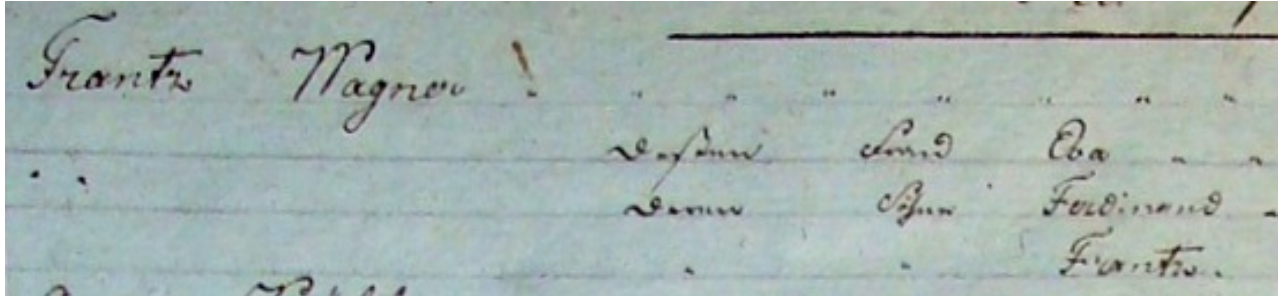 Frantz Wagner
Dessen Frau Eva
Deren Söhne Ferdinand
Frantz.